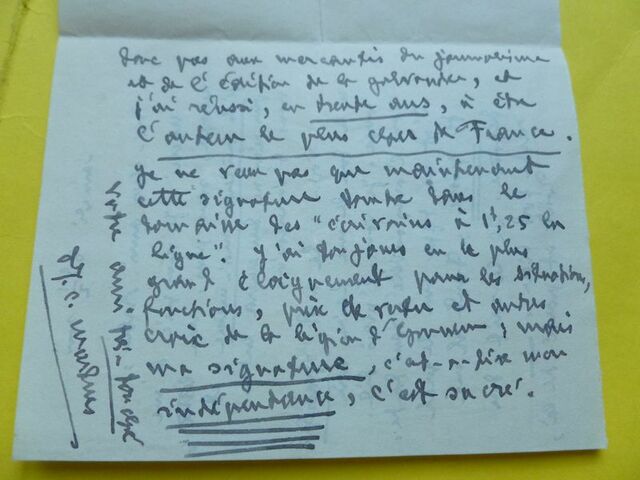 donc pas aux mercantis du journalisme
et de l'édition de la galvauder, et
j'ai réussi, en trente ans, à être
l'auteur le plus cher de France.
Je ne veux pas que maintenant
cette signature tombe dans le
domaine des "écrivains à 1f,25 la
ligne". J'ai toujours eu le plus
grand éloignement pour les situations,
fonctions, prix de vertu et autres
croix de la Légion d'honneur ; mais
ma signature, c'est-à-dire mon
indépendance, c'est sacré.
votre ami
J. C. Mardrus